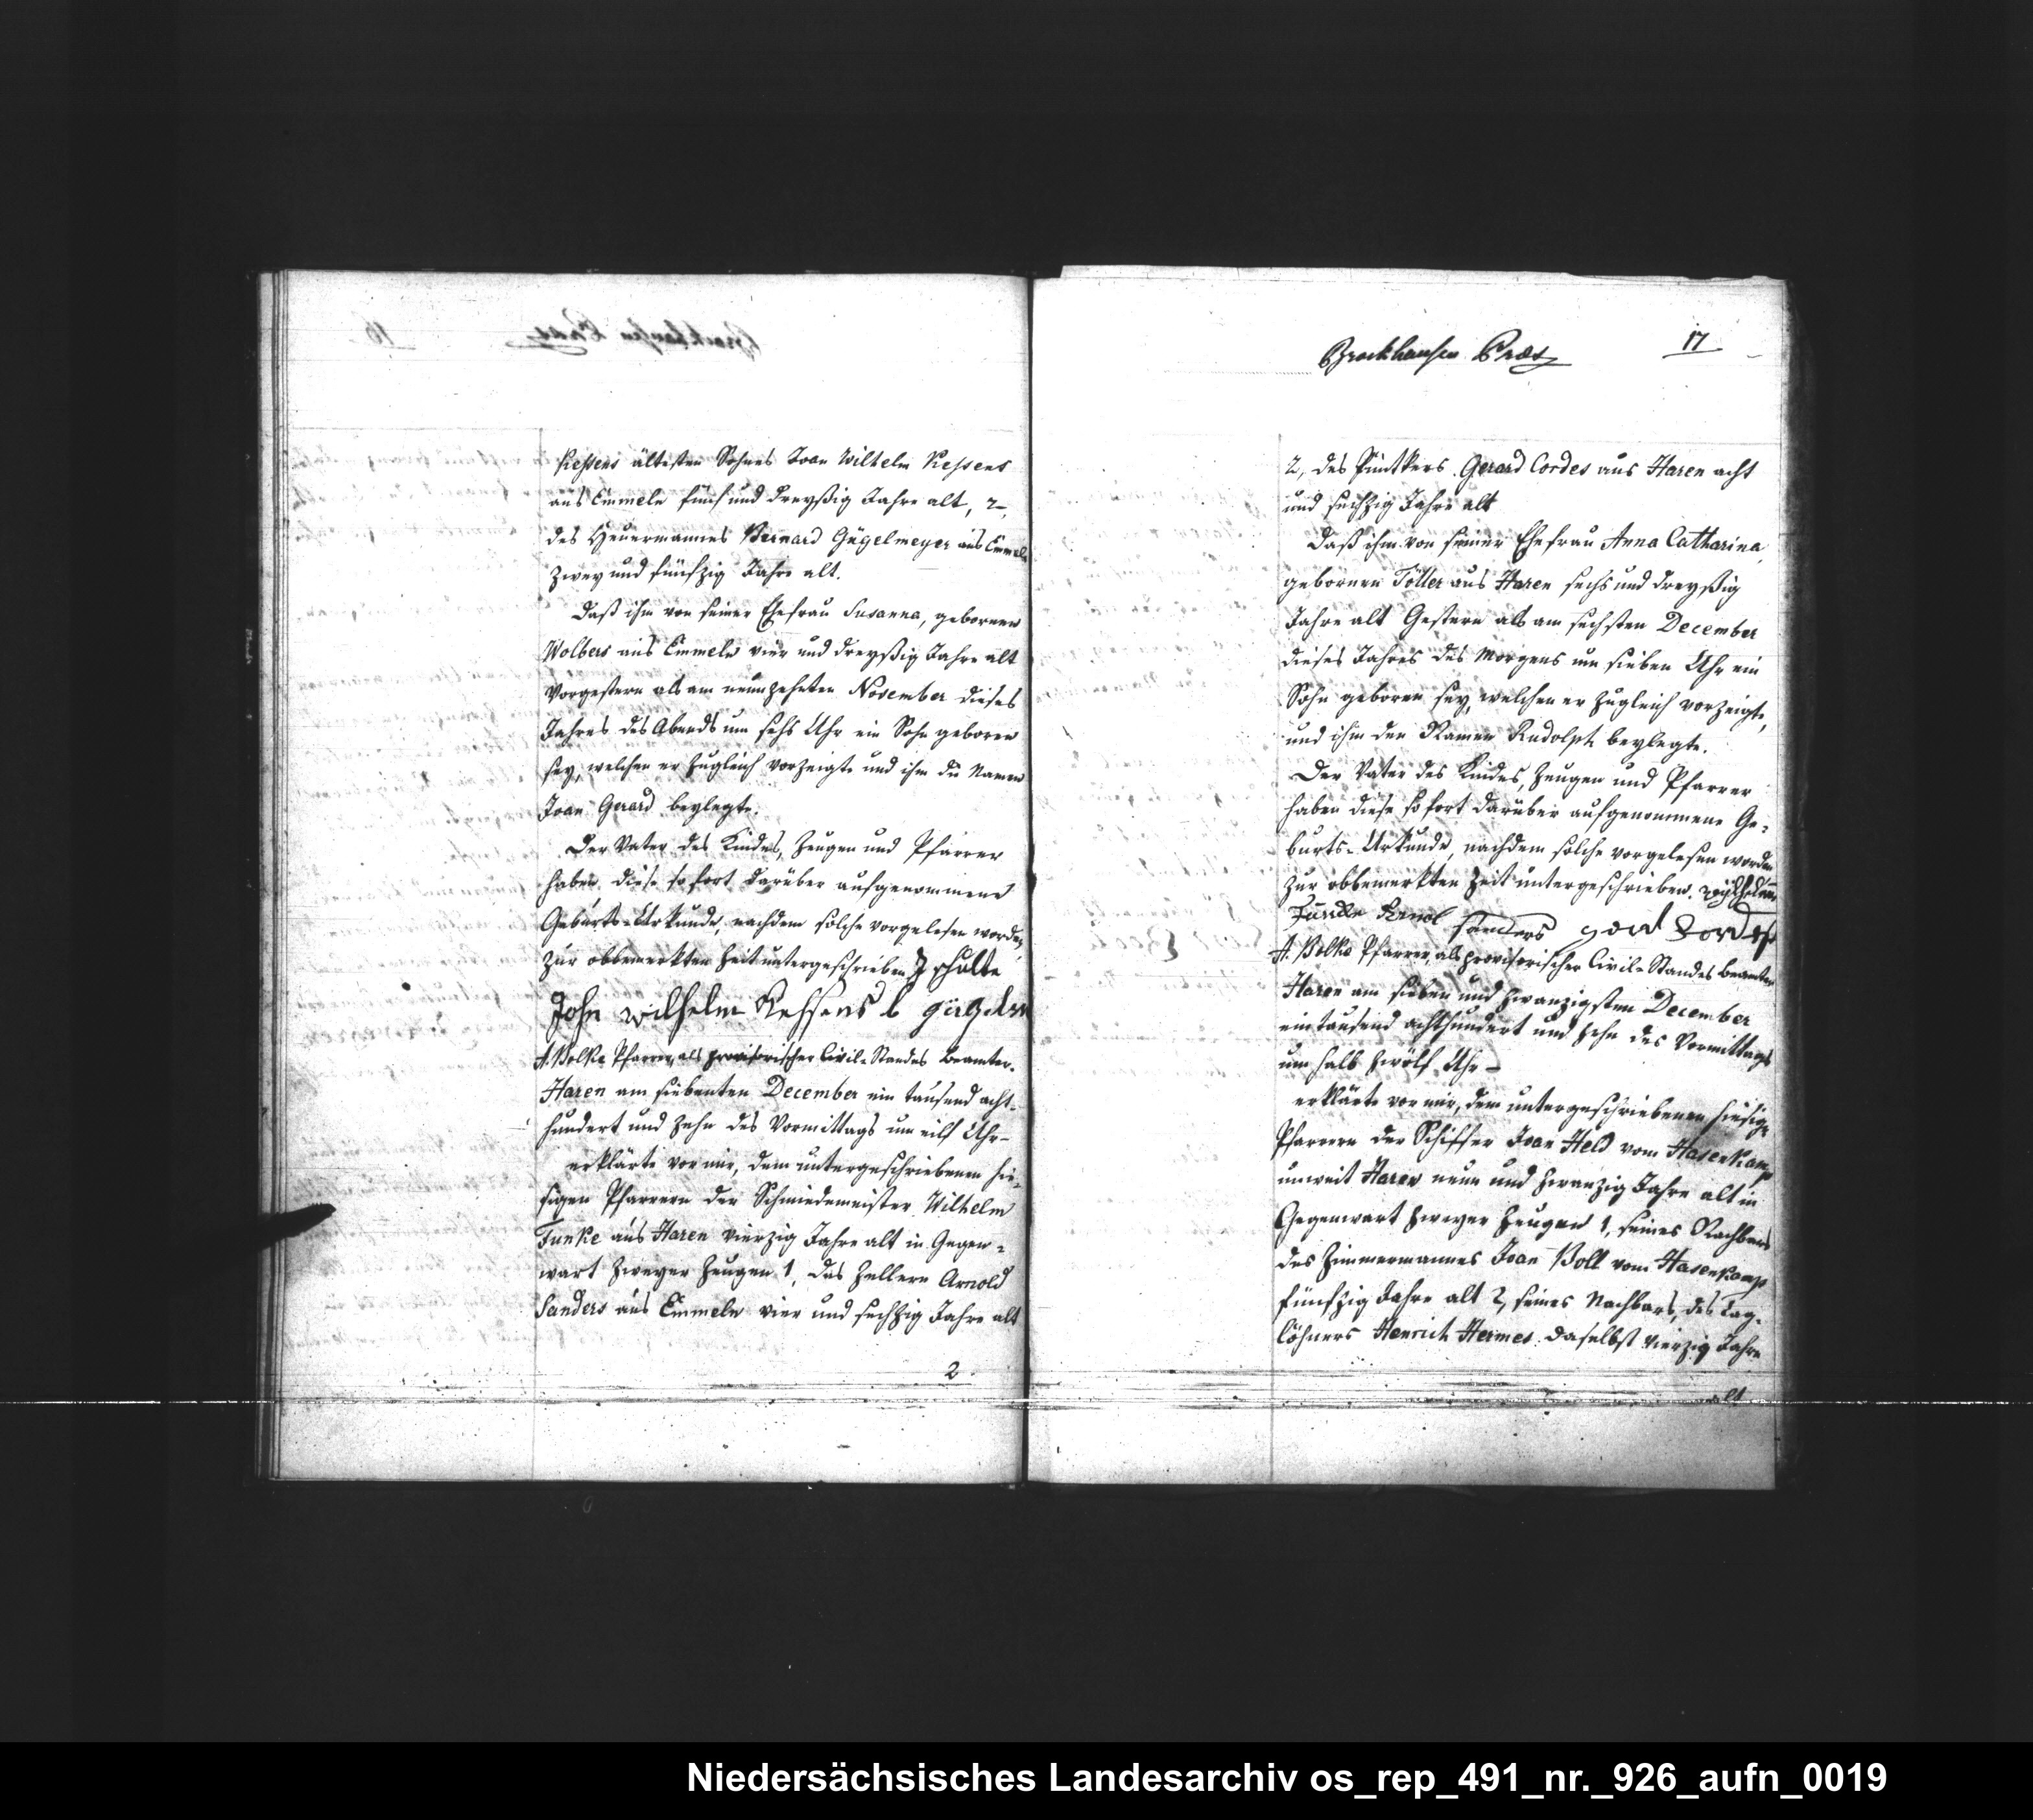 Kessens ältesten Sohnes Joan Wilhelm Kessens
aus Emmeln fünf und dreyßig Jahre alt, 2,
des Heuermannes Bernard Gügelmeyer aus Emmeln
zwey und fünfzig Jahre alt.
Daß ihm von seiner Ehefrau Susanna, gebornen
Wolbers aus Emmeln vier und dreyßig Jahre alt
Vorgestern als am neunzehnten November dieses
Jahres des Abends um sechs Uhr ein Sohn geboren
sey, welchen er zugleich vorzeigte und ihm die Namen
Joan Gerard beylegte.
Der Vater des Kindes, Zeugen und Pfarrer
haben diese sofort darüber aufgenommene
Geburts-Urkunde, nachdem solche vorgelesen worden,
zur obbemerkten Zeit unterschrieben J schulte
John wilhelm Kehsens b
A. Bolke Pfarrer, als provisorischer Civil-Standes Beamter.
Haren am siebenten December ein tausend acht-
hundert und zehn des Vormittags um eilf Uhr-
erklärte vor mir, dem untergeschriebenen hie-
sigen Pfarrern der Schmiedemeister Wilhelm
Funke aus Haren vierzig Jahre alt in Gegen-
wart zweyer Zeugen 1, des Zellern Arnold
Sanders aus Emmeln vier und sechzig Jahre alt
2
Brockhausen Præs
17
2, des Gerard Cordes aus Haren acht
und sechzig Jahre alt
Daß ihm von seiner Ehefrau Anna Catharina,
gebornen Töller aus Haren sechs und dreyßig
Jahre alt Gestern als am sechsten December
dieses Jahres des Morgens um sieben Uhr ein
Sohn geboren sey, welchen er zugleich vorzeigte,
und ihm den Namen Rudolph beylegte.
Der Vater des Kindes, Zeugen und Pfarrer
haben diese sofort darüber aufgenommene Ge-
burts-Urkunde, nachdem solche vorgelesen worden
zur obbemerkten Zeit untergeschrieben.
Funke Sanders
A. Bolke Pfarrer, als provisorischer Civil-Standes Beamter
Haren am sieben und zwanzigsten December
ein tausend achthundert und zehn des Vormittags
um halb zwölf Uhr-
erklärte vor mir, dem untergeschriebenen hiesigen
Pfarrern der Schiffer Joan Held vom Hasenkamp
unweit Haren neun und zwanzig Jahre alt in
Gegenwart zweyer Zeugen 1, seines Nachbars
des Zimmermannes Joan Boll vom Hasenkamp
fünfzig Jahre alt 2, seines Nachbars, des Tag-
löhners Henrich Hermes daselbst vierzig Jahre
alt
Niedersächsisches Landesarchiv os_rep_491_nr._926_aufn_0019